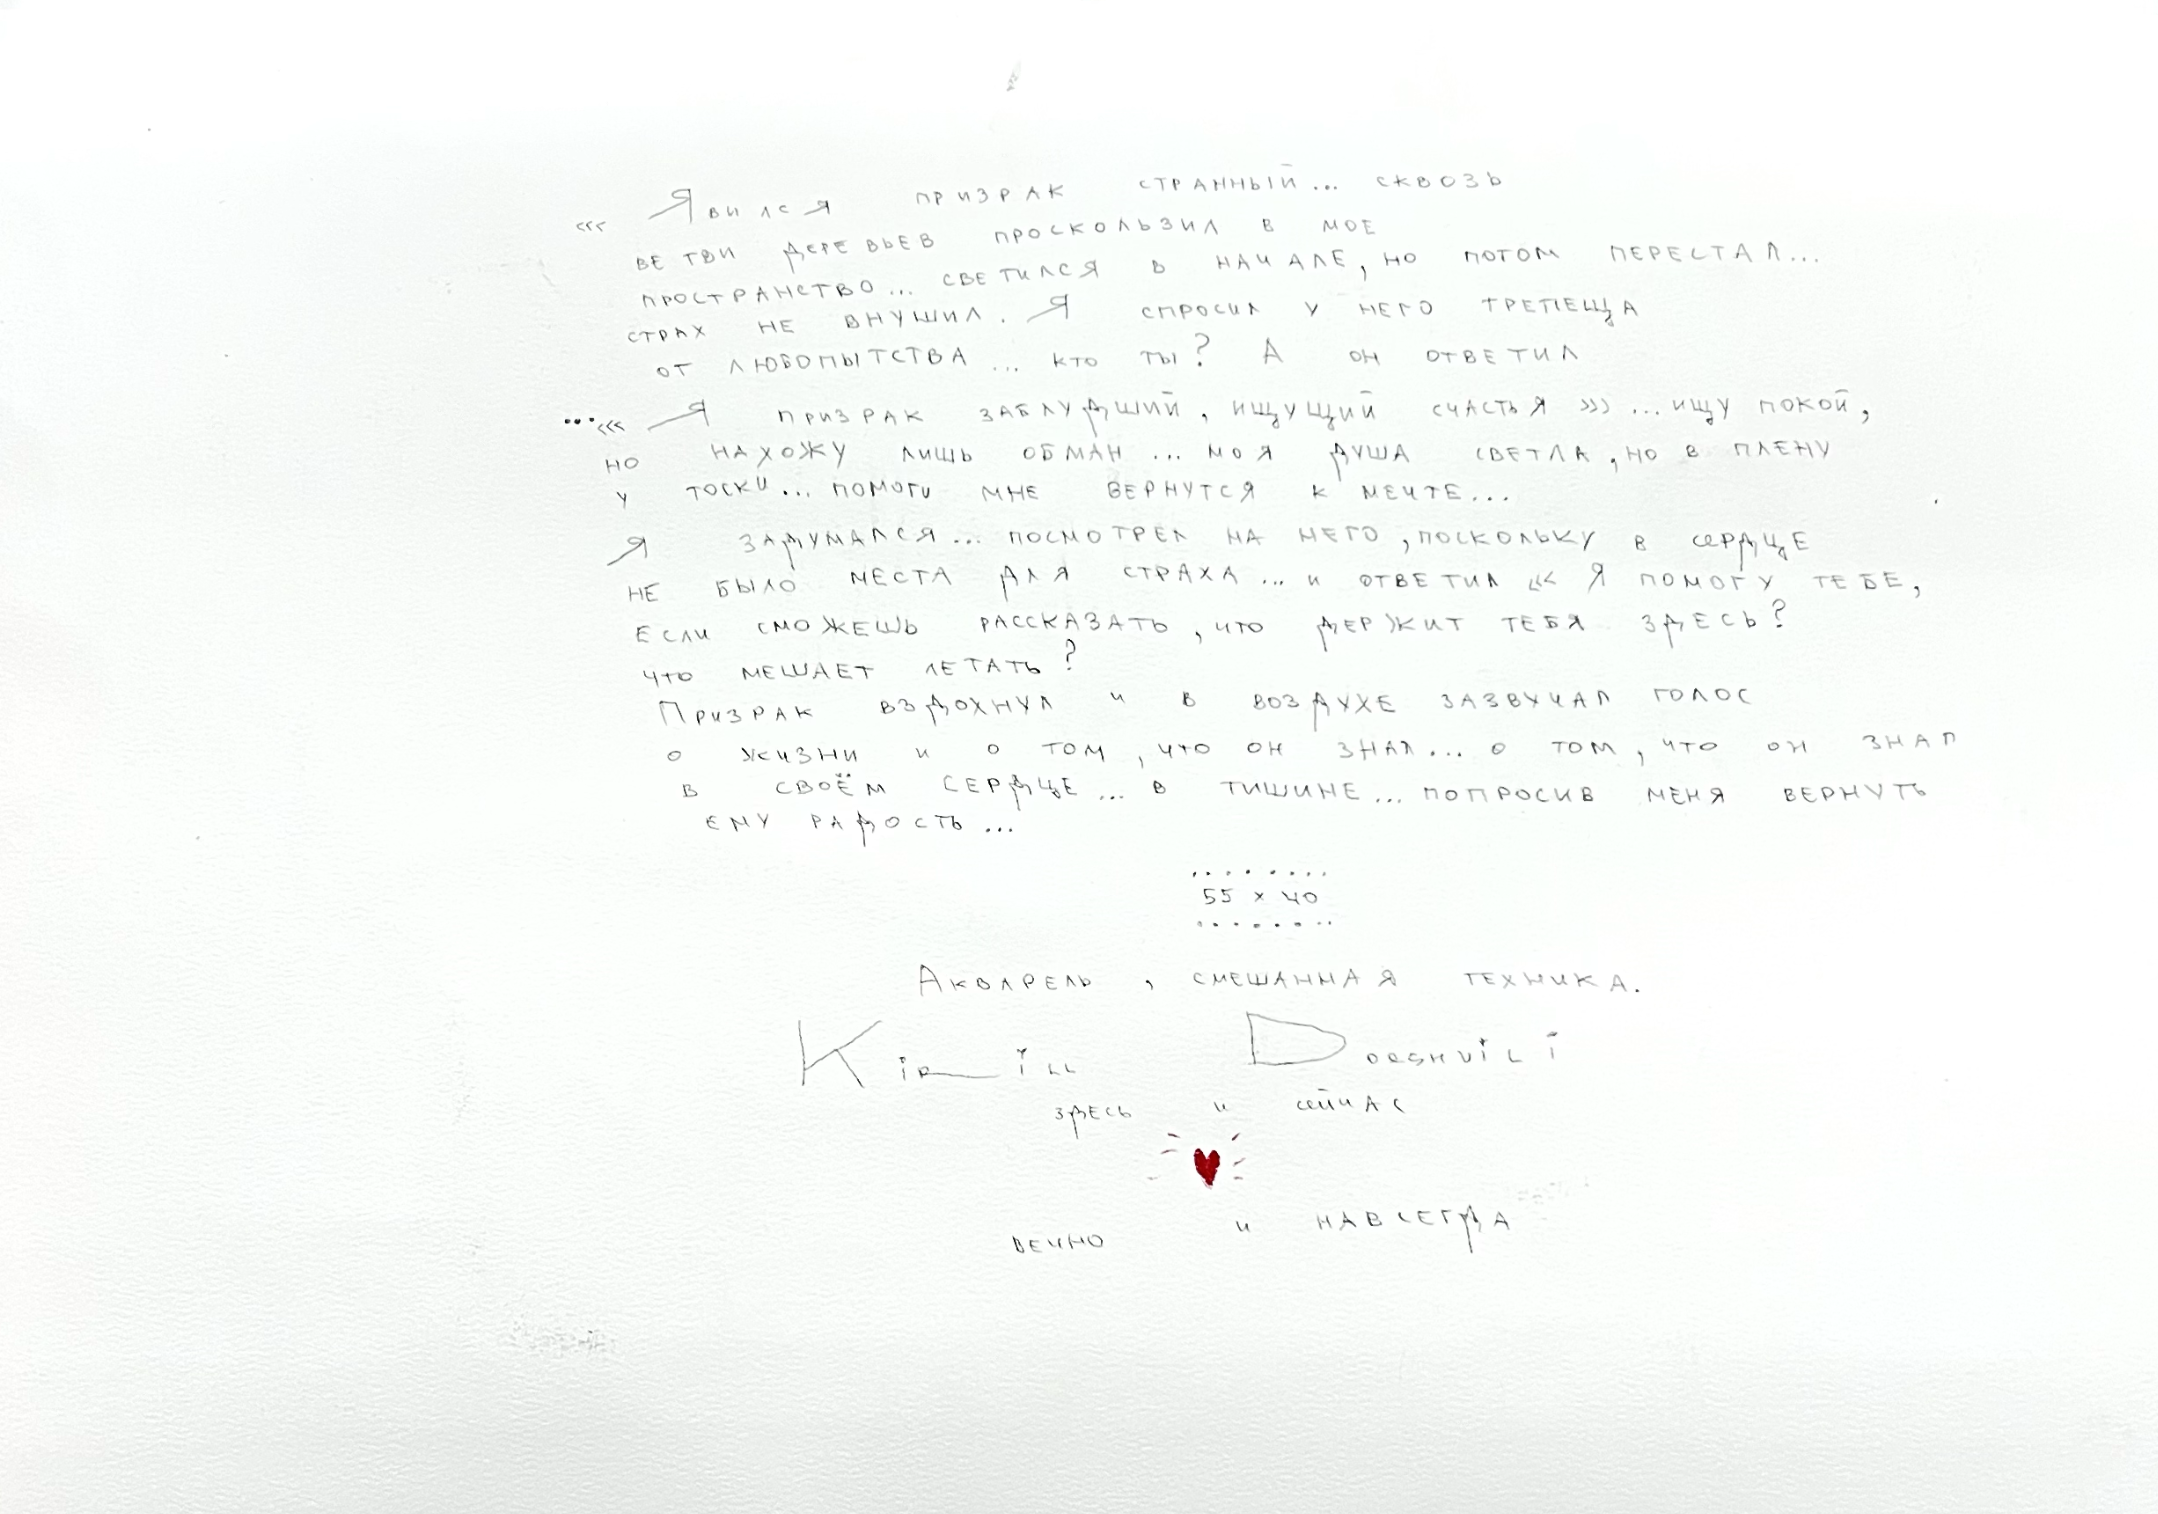 ««« Явился призрак странный... сквозь
ветви деревьев проскользил в мое
пространство... светился в начале, но потом перестал...
страх не внушил. Я спросил у него трепеща
от любопытства ... кто ты? А он ответил
...««« Я призрак заблудший, ищущий счастья »»» ... ищу покой,
но нахожу лишь обман ... моя душа светла, но в плену
у тоски... помоги мне вернутся к мечте...
Я задумался... посмотрел на него, поскольку в сердце
не было места для страха... и ответил «« Я помогу тебе,
Если сможешь рассказать, что держит тебя здесь?
что мешает летать?
Призрак вздохнул и в воздухе зазвучал голос
о жизни и о том, что он знал... о том, что он знал
в своём сердце... в тишине... попросив меня вернуть
ему радость...
55 x 40
Акварель, смешанная техника.
Kirill Doeshvili
здесь и сейчас
вечно и навсегда